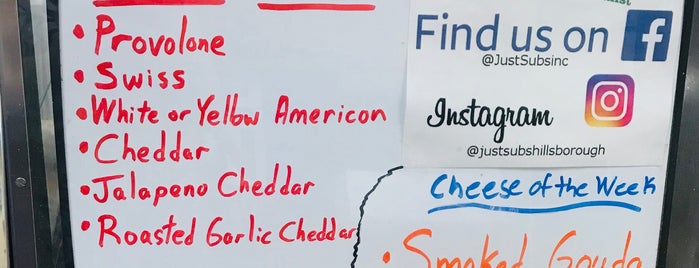 • Provolone
• Swiss
• White or Yellow Americon
• Cheddar
• Jalapeno Cheddar
• Roasted Garlic Cheddar
Find us on f
@JustSubsinc
Instagram
@justsubshillsborough
Cheese of the Week
• Smoked Gouda